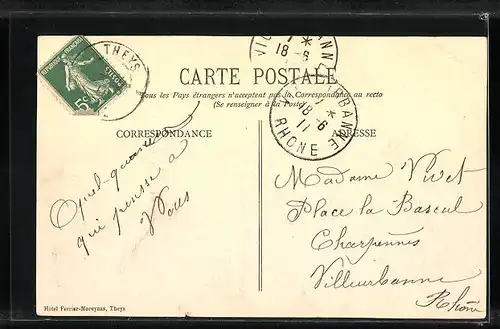 THEYS
REPUBLIQUE FRANÇAISE
POSTES
5c
18-6
CARTE POSTALE
Tous les Pays étrangers n'acceptent pas la Correspondance au recto
(Se renseigner à la Poste)
VILLEURBANNE
18-6
11
RHONE
CORRESPONDANCE
ADRESSE
qui pense a
Vous
Madame Vivet
Place la Bascul
Charpennes
Villeurbanne
Rhône
Hotel Ferrier-Moreynas, Theys